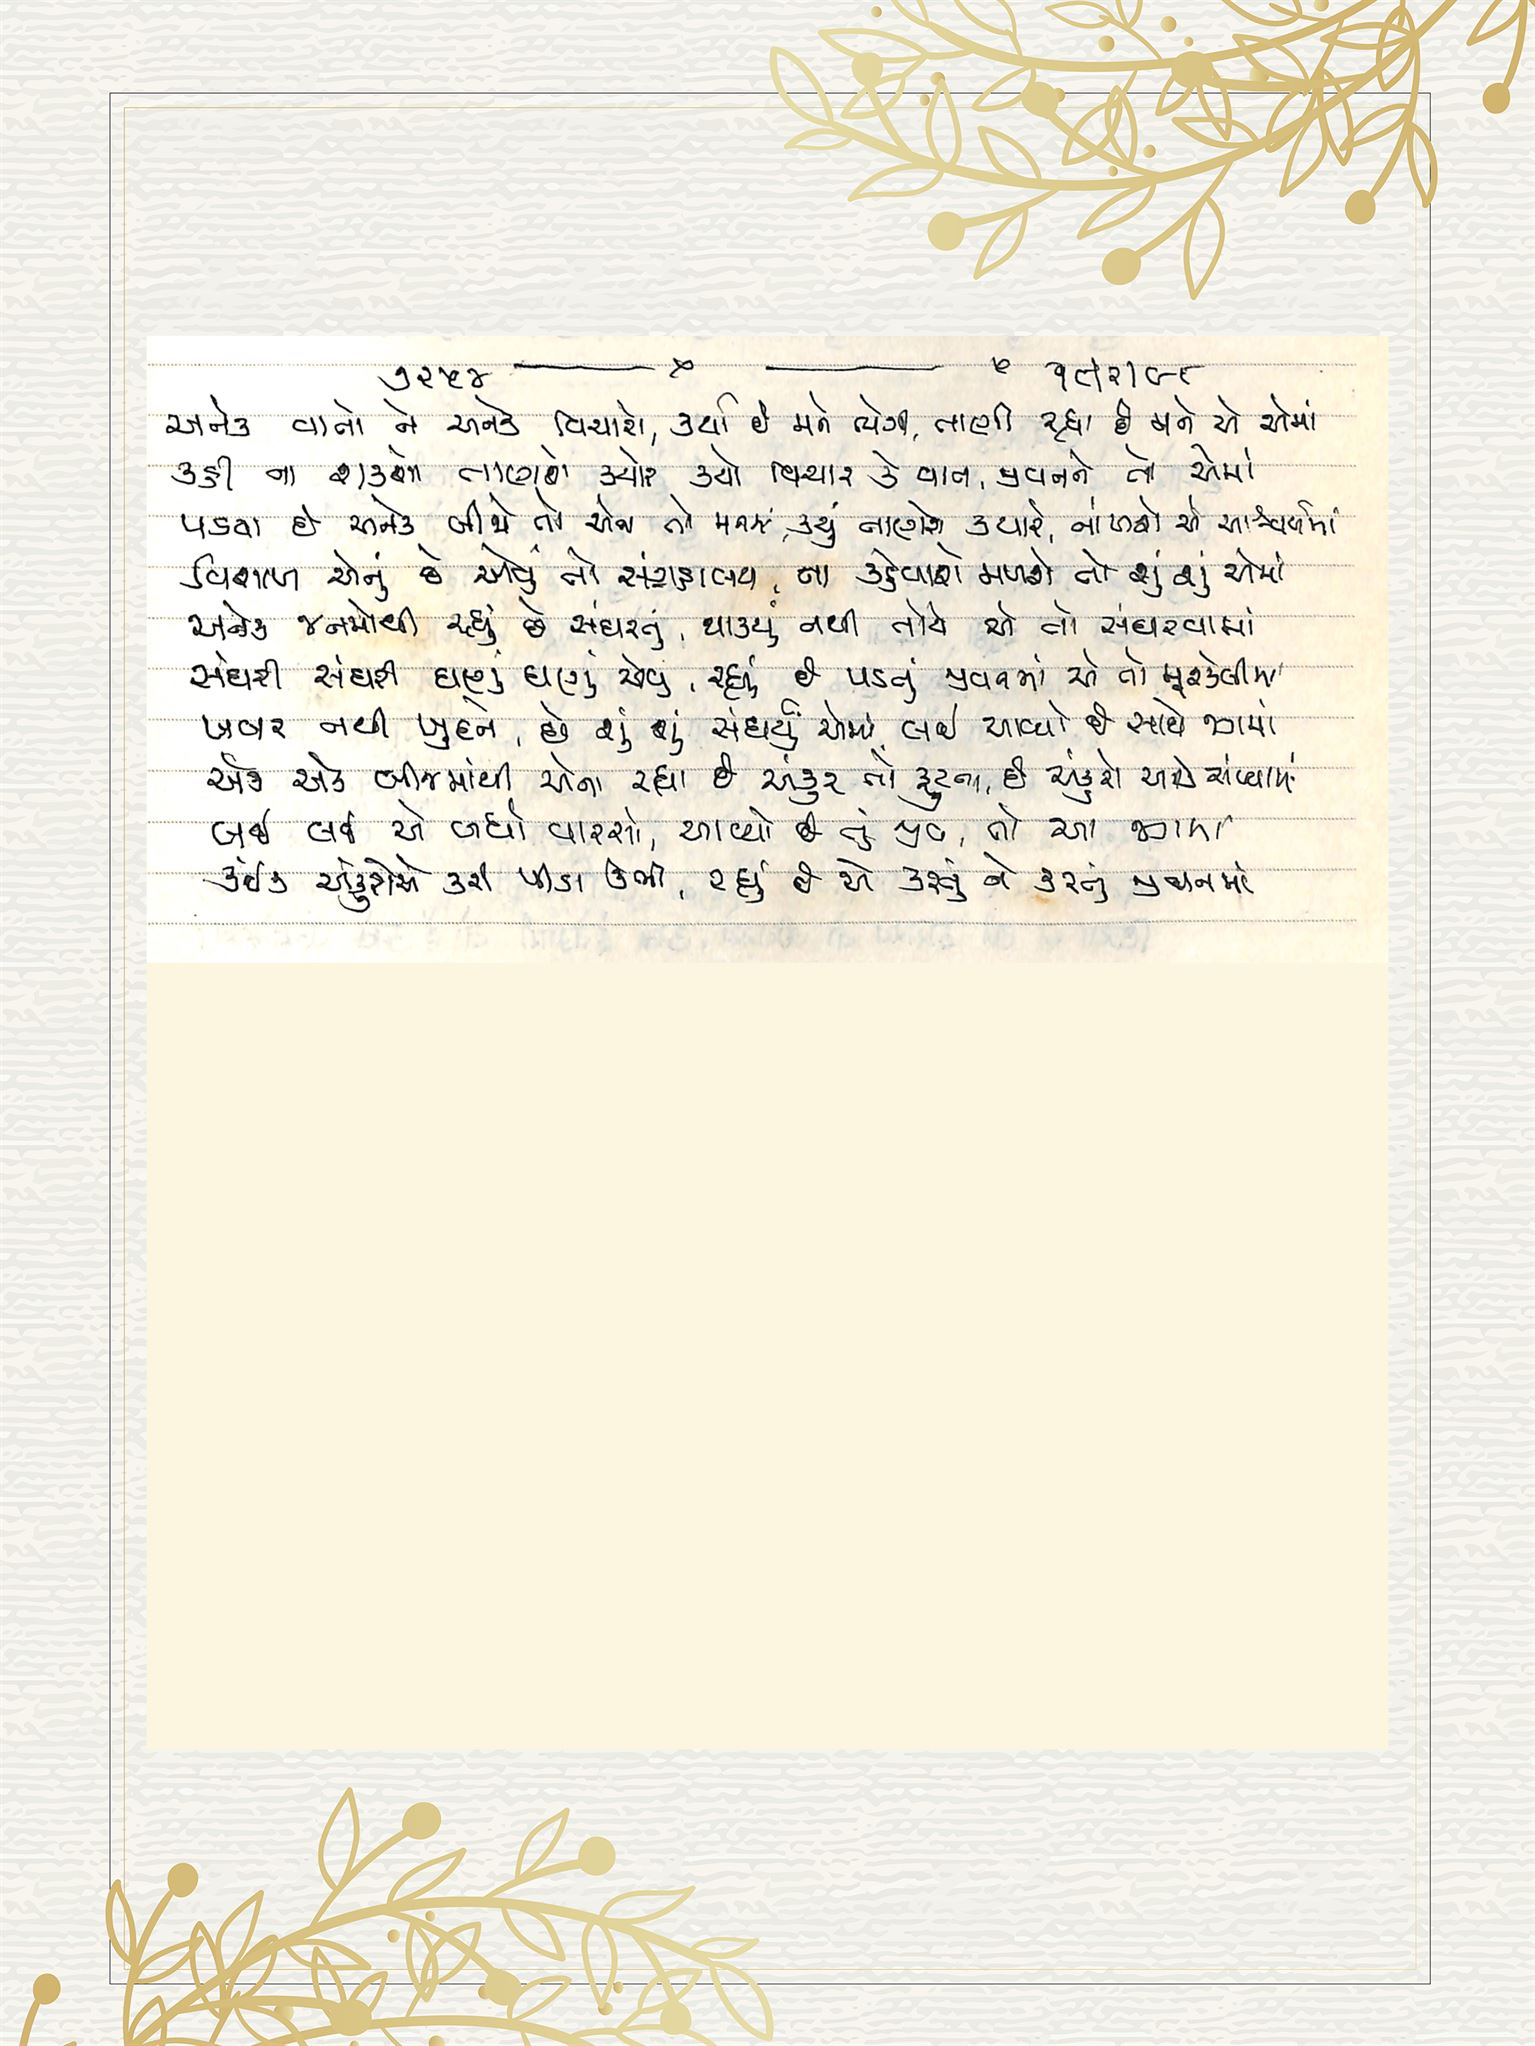 ૭૨૫૪ ૧૯|૨|૯૮
અનેક વાતો ને અનેક વિચારો, કર્યા છે મને ભેગા, તાણી રહ્યા છે મને એ એમાં
કહી ના શકશો તાણશે ક્યારે કયો વિચાર કે વાત, જીવનને તો એમાં
પડયા છે અનેક બીજો તો એના તો મનમાં, કયું તાણશે ક્યારે, નાંખશે એ આશ્ચર્યમાં
વિશાળ એનું છે એવું તો સંગ્રહાલય, ના કહેવાશે મળશે તો શું શું એમાં
અનેક જનમોથી રહ્યું છે સંઘરતું, થાક્યું નથી તોયે એ તો સંઘરવામાં
સંઘરી સંઘરી ઘણું ઘણું એવું, રહ્યું છે પડતું જીવનમાં એ તો મુશ્કેલીમાં
ખબર નથી ખુદને, છે શું શું સંઘર્યું એમાં, લઈ આવ્યો છે સાથે જગમાં
એક એક બીજમાંથી એના રહ્યા છે અંકુર તો ફૂટતા, છે અંકુરો અસંખ્યામાં
લઈ લઈ એ બધો વારસો, આવ્યો છે તું જીવ, તો આ જગમાં
કંઈક અંકુરોએ કરી પીડા ઊભી, રહ્યું છે એ કરતું ને કરતું જીવનમાં